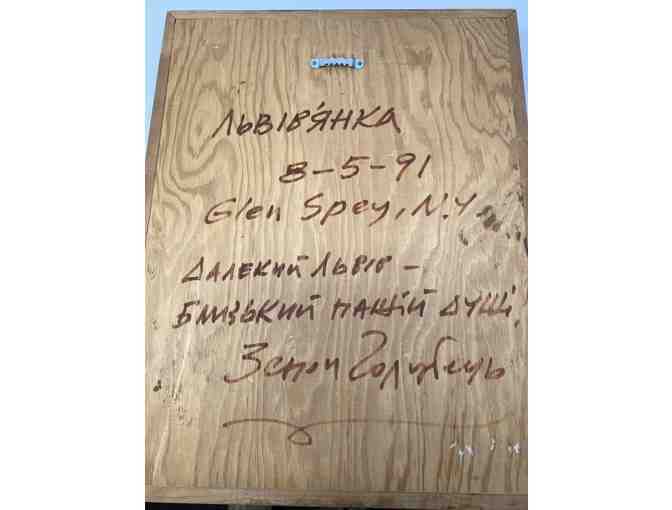 ЛЬВІВ'ЯНКА
8-5-91
Glen Spey, N.Y
ДАЛЕКИЙ ЛЬВІВ –
БЛИЗЬКИЙ НАШІЙ ДУШІ.
Зенон Голубець